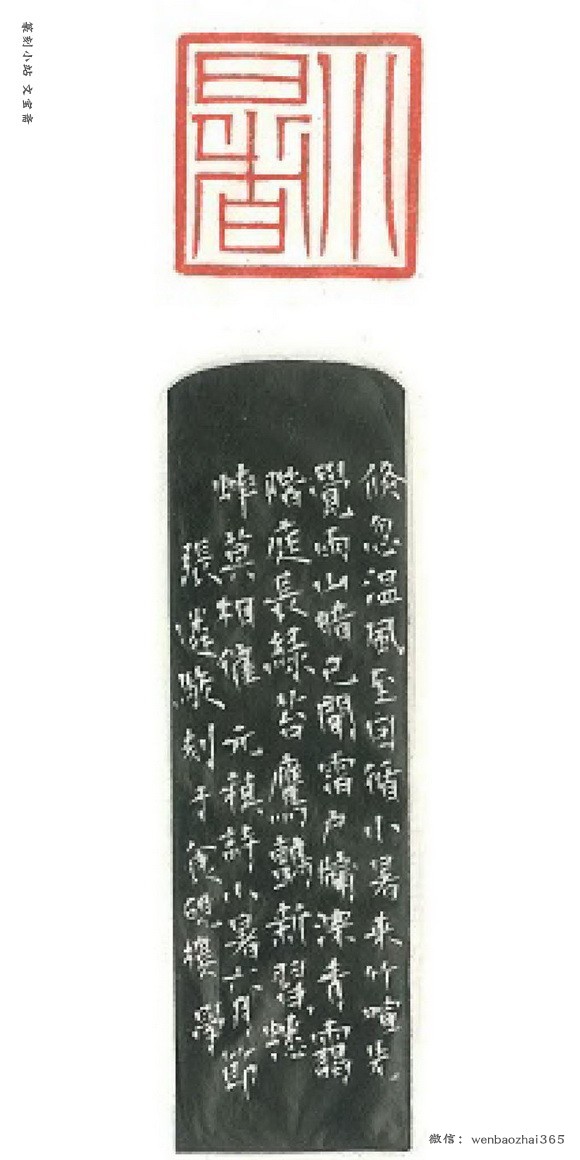 篆刻小站 文宝斋
小暑
倏忽温風至因循小暑來竹喧先
覺雨山暗已聞雷户牖深青靄
階庭長緑苔鷹鸇新習蟋
蟀莫相催 元稹詩小暑六月節
張遴駿刻于 硯樓
微信：wenbaozhai365